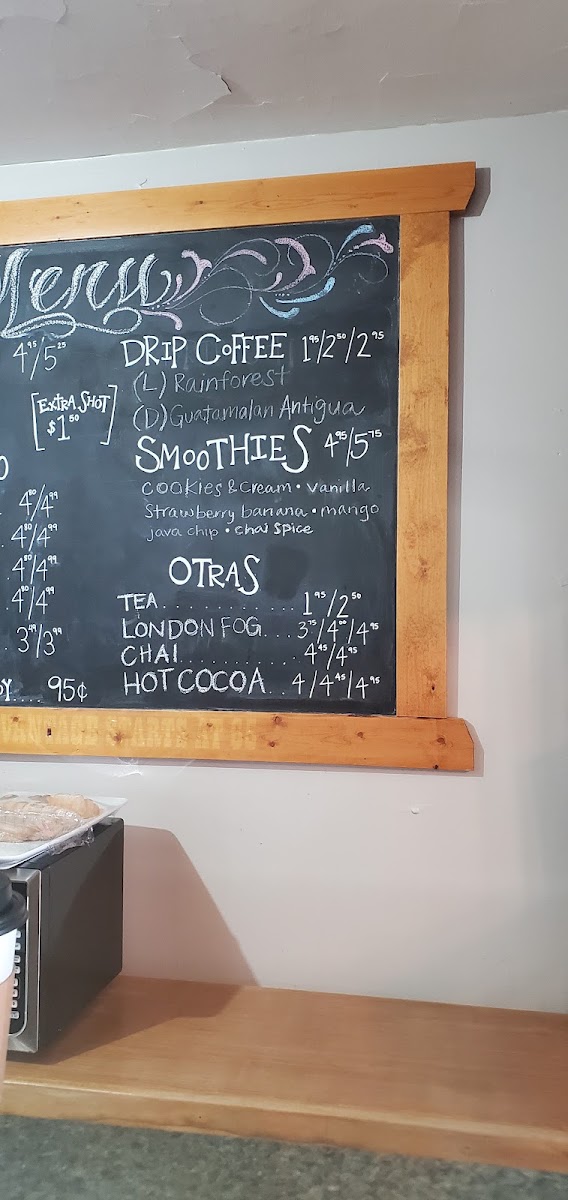 Menu
4⁹⁵/5²⁵
[EXTRA SHOT
$1⁵⁰]
O
4⁵⁰/4⁹⁹
4⁵⁰/4⁹⁹
4⁵⁰/4⁹⁹
4⁵⁰/4⁹⁹
3⁴⁹/3⁹⁹
95¢
DRIP COFFEE 1⁹⁵/2⁵⁰/2⁹⁵
(L) Rainforest
(D) Guatamalan Antigua
SMOOTHIES 4⁹⁵/5⁷⁵
cookies & cream • vanilla
Strawberry banana • mango
java chip • chai spice
OTRAS
TEA........... 1⁹⁵/2⁵⁰
LONDON FOG... 3⁷⁵/4⁰⁰/4⁹⁵
CHAI............ 4⁴⁵/4⁹⁵
HOT COCOA.. 4/4⁴⁵/4⁹⁵